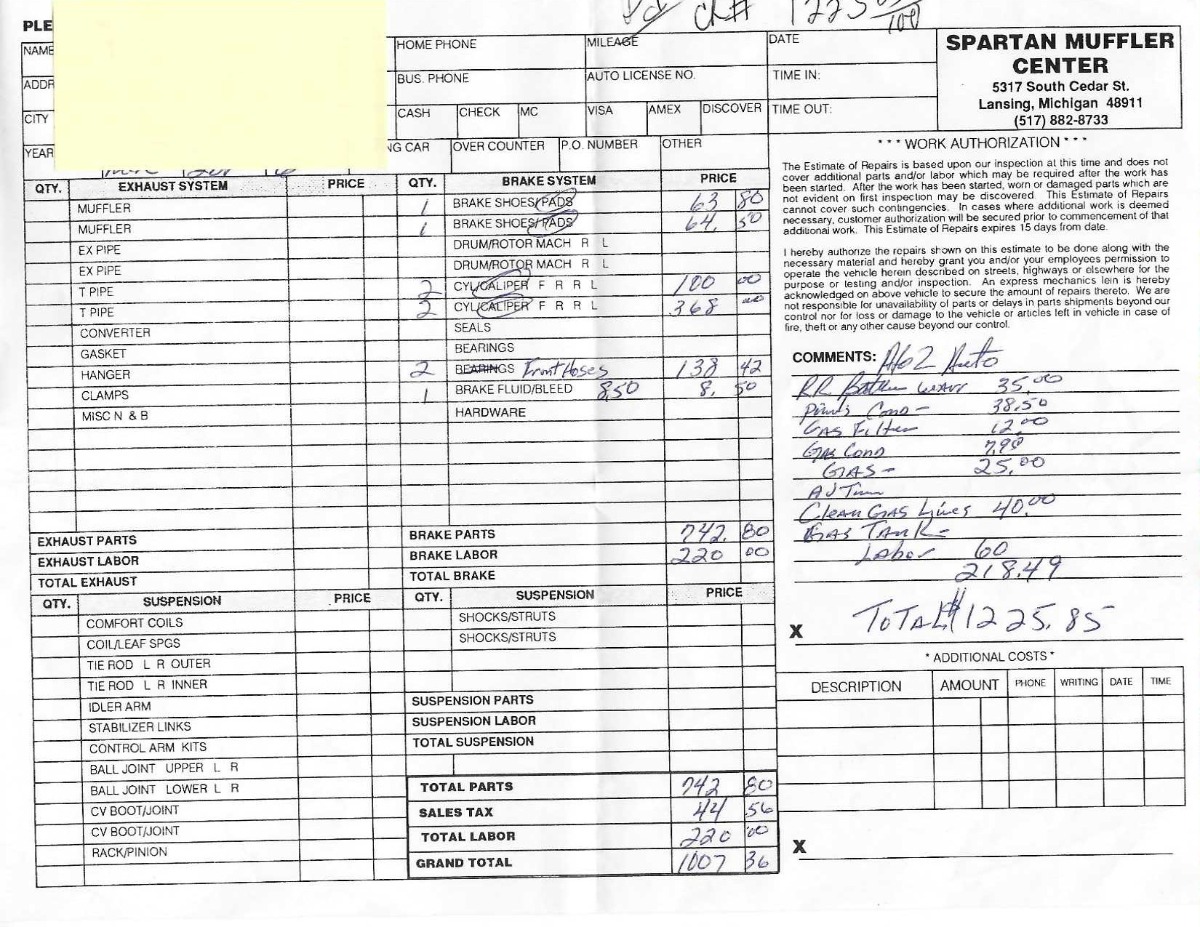 Pd Ck# 1225 00/100
PLE
NAME HOME PHONE MILEAGE DATE
SPARTAN MUFFLER
CENTER
5317 South Cedar St.
Lansing, Michigan 48911
(517) 882-8733
ADDR BUS. PHONE AUTO LICENSE NO. TIME IN:
CITY CASH CHECK MC VISA AMEX DISCOVER TIME OUT:
YEAR NG CAR OVER COUNTER P.O. NUMBER OTHER
QTY. EXHAUST SYSTEM PRICE QTY. BRAKE SYSTEM PRICE
MUFFLER 1 BRAKE SHOES/PADS 63 80
MUFFLER 1 BRAKE SHOES/PADS 64. 50
EX PIPE DRUM/ROTOR MACH R L
EX PIPE DRUM/ROTOR MACH R L
T PIPE 2 CYL/CALIPER F R R L 100 00
T PIPE 2 CYL/CALIPER F R R L 368 00
CONVERTER SEALS
GASKET BEARINGS
HANGER 2 BEARINGS Front Hoses 138 42
CLAMPS 1 BRAKE FLUID/BLEED 8,50 8. 50
MISC N & B HARDWARE
EXHAUST PARTS BRAKE PARTS 742. 80
EXHAUST LABOR BRAKE LABOR 220 00
TOTAL EXHAUST TOTAL BRAKE
QTY. SUSPENSION PRICE QTY. SUSPENSION PRICE
COMFORT COILS SHOCKS/STRUTS
COIL/LEAF SPGS SHOCKS/STRUTS
TIE ROD L R OUTER
TIE ROD L R INNER
IDLER ARM SUSPENSION PARTS
STABILIZER LINKS SUSPENSION LABOR
CONTROL ARM KITS TOTAL SUSPENSION
BALL JOINT UPPER L R
BALL JOINT LOWER L R TOTAL PARTS 742 80
CV BOOT/JOINT SALES TAX 44 56
CV BOOT/JOINT TOTAL LABOR 220 00
RACK/PINION GRAND TOTAL 1007 36
* * * WORK AUTHORIZATION * * *
The Estimate of Repairs is based upon our inspection at this time and does not
cover additional parts and/or labor which may be required after the work has
been started. After the work has been started, worn or damaged parts which are
not evident on first inspection may be discovered This Estimate of Repairs
cannot cover such contingencies. In cases where additional work is deemed
necessary, customer authorization will be secured prior to commencement of that
additional work. This Estimate of Repairs expires 15 days from date.
I hereby authorize the repairs shown on this estimate to be done along with the
necessary material and hereby grant you and/or your employees permission to
operate the vehicle herein described on streets, highways or elsewhere for the
purpose or testing and/or inspection. An express mechanics lein is hereby
acknowledged on above vehicle to secure the amount of repairs thereto. We are
not responsible for unavailability of parts or delays in parts shipments beyond our
control nor for loss or damage to the vehicle or articles left in vehicle in case of
fire, theft or any other cause beyond our control.
COMMENTS: Auto
RR 35.00
Cond - 38.50
GAS Filter 12.00
GAS Cond 7,98
GAS - 25.00
Clean GAS Lines 40.00
GAS TANK -
Labor 60
218.49
X TOTAL $1225.85
* ADDITIONAL COSTS *
DESCRIPTION AMOUNT PHONE WRITING DATE TIME
X